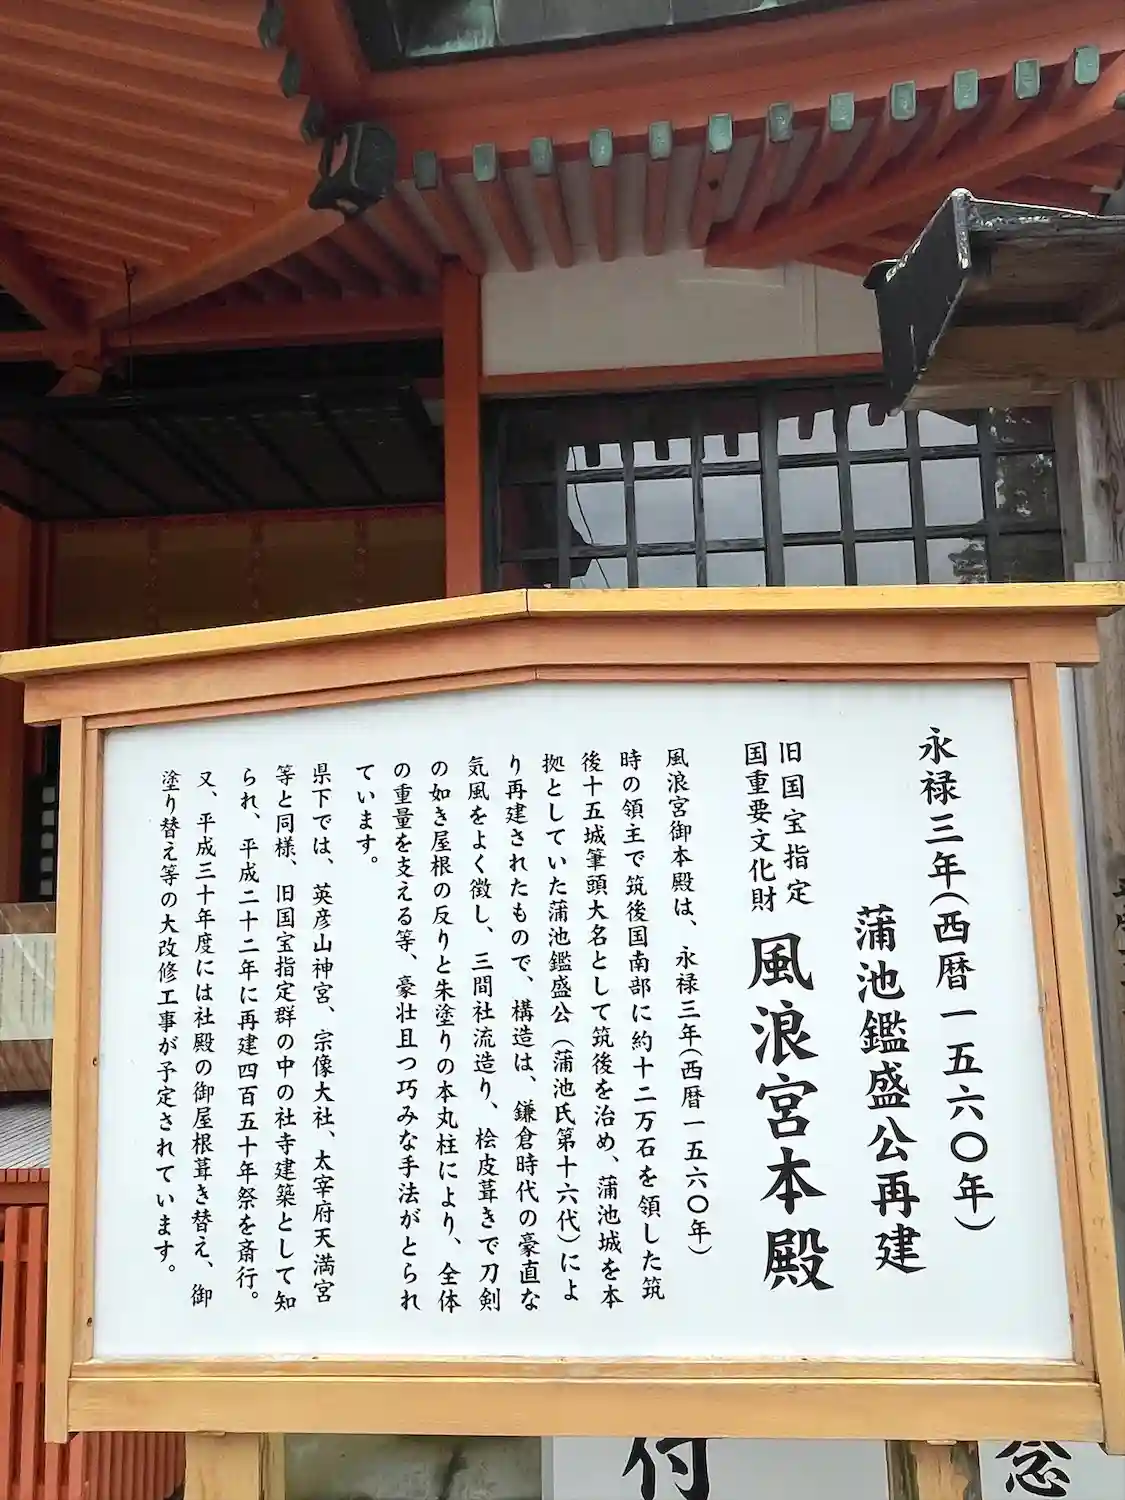 永禄三年(西暦一五六〇年)
蒲池鑑盛公再建
旧国宝指定
国重要文化財
風浪宮本殿
風浪宮御本殿は、永禄三年(西暦一五六〇年)
時の領主で筑後国南部に約十二万石を領した筑
後十五城筆頭大名として筑後を治め、蒲池城を本
拠としていた蒲池鑑盛公(蒲池氏第十六代)によ
り再建されたもので、構造は、鎌倉時代の豪直な
気風をよく徴し、三間社流造り、桧皮葺きで刀剣
の如き屋根の反りと朱塗りの本丸柱により、全体
の重量を支える等、豪壮且つ巧みな手法がとられ
ています。
県下では、英彦山神宮、宗像大社、太宰府天満宮
等と同様、旧国宝指定群の中の社寺建築として知
られ、平成二十二年に再建四百五十年祭を斎行。
又、平成三十年度には社殿の御屋根葺き替え、御
塗り替え等の大改修工事が予定されています。
付
念